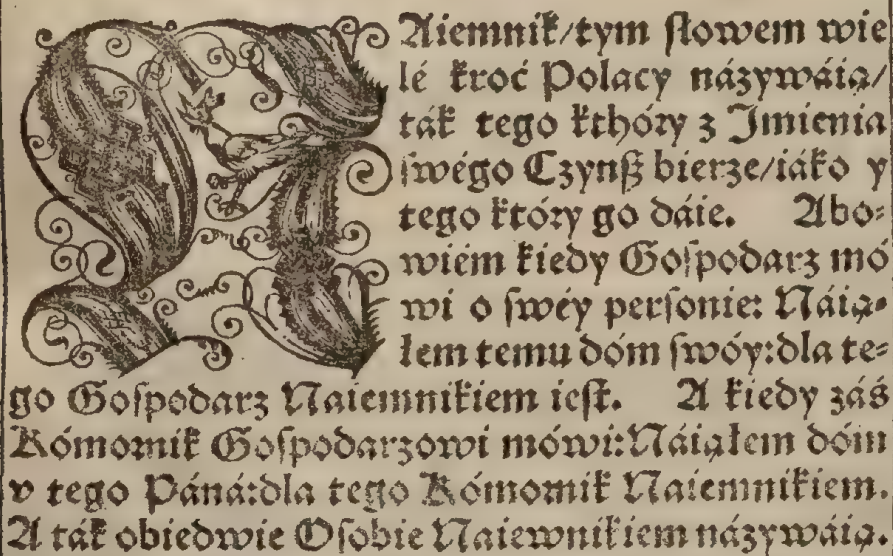 NAiemnik/tym ſłowem wie
lé kroć Polacy názywáią/
ták tego kthóry z Imienia
ſwégo Czynſz bierze/iáko y
tego który go dáie. Abo⸗
wiém kiedy Goſpodarz mó
wi o ſwéy perſonie: Náią⸗
łem temu dóm ſwóy:dla te⸗
go Goſpodarz Naiemnikiem ieſt. A kiedy záś
Kómornik Goſpodarzowi mówi:Náiąłem dóm
v tego Páná:dla tego Kómornik Naiemnikiem.
A ták obiedwie Oſobie Naiewnikiem názywáią.